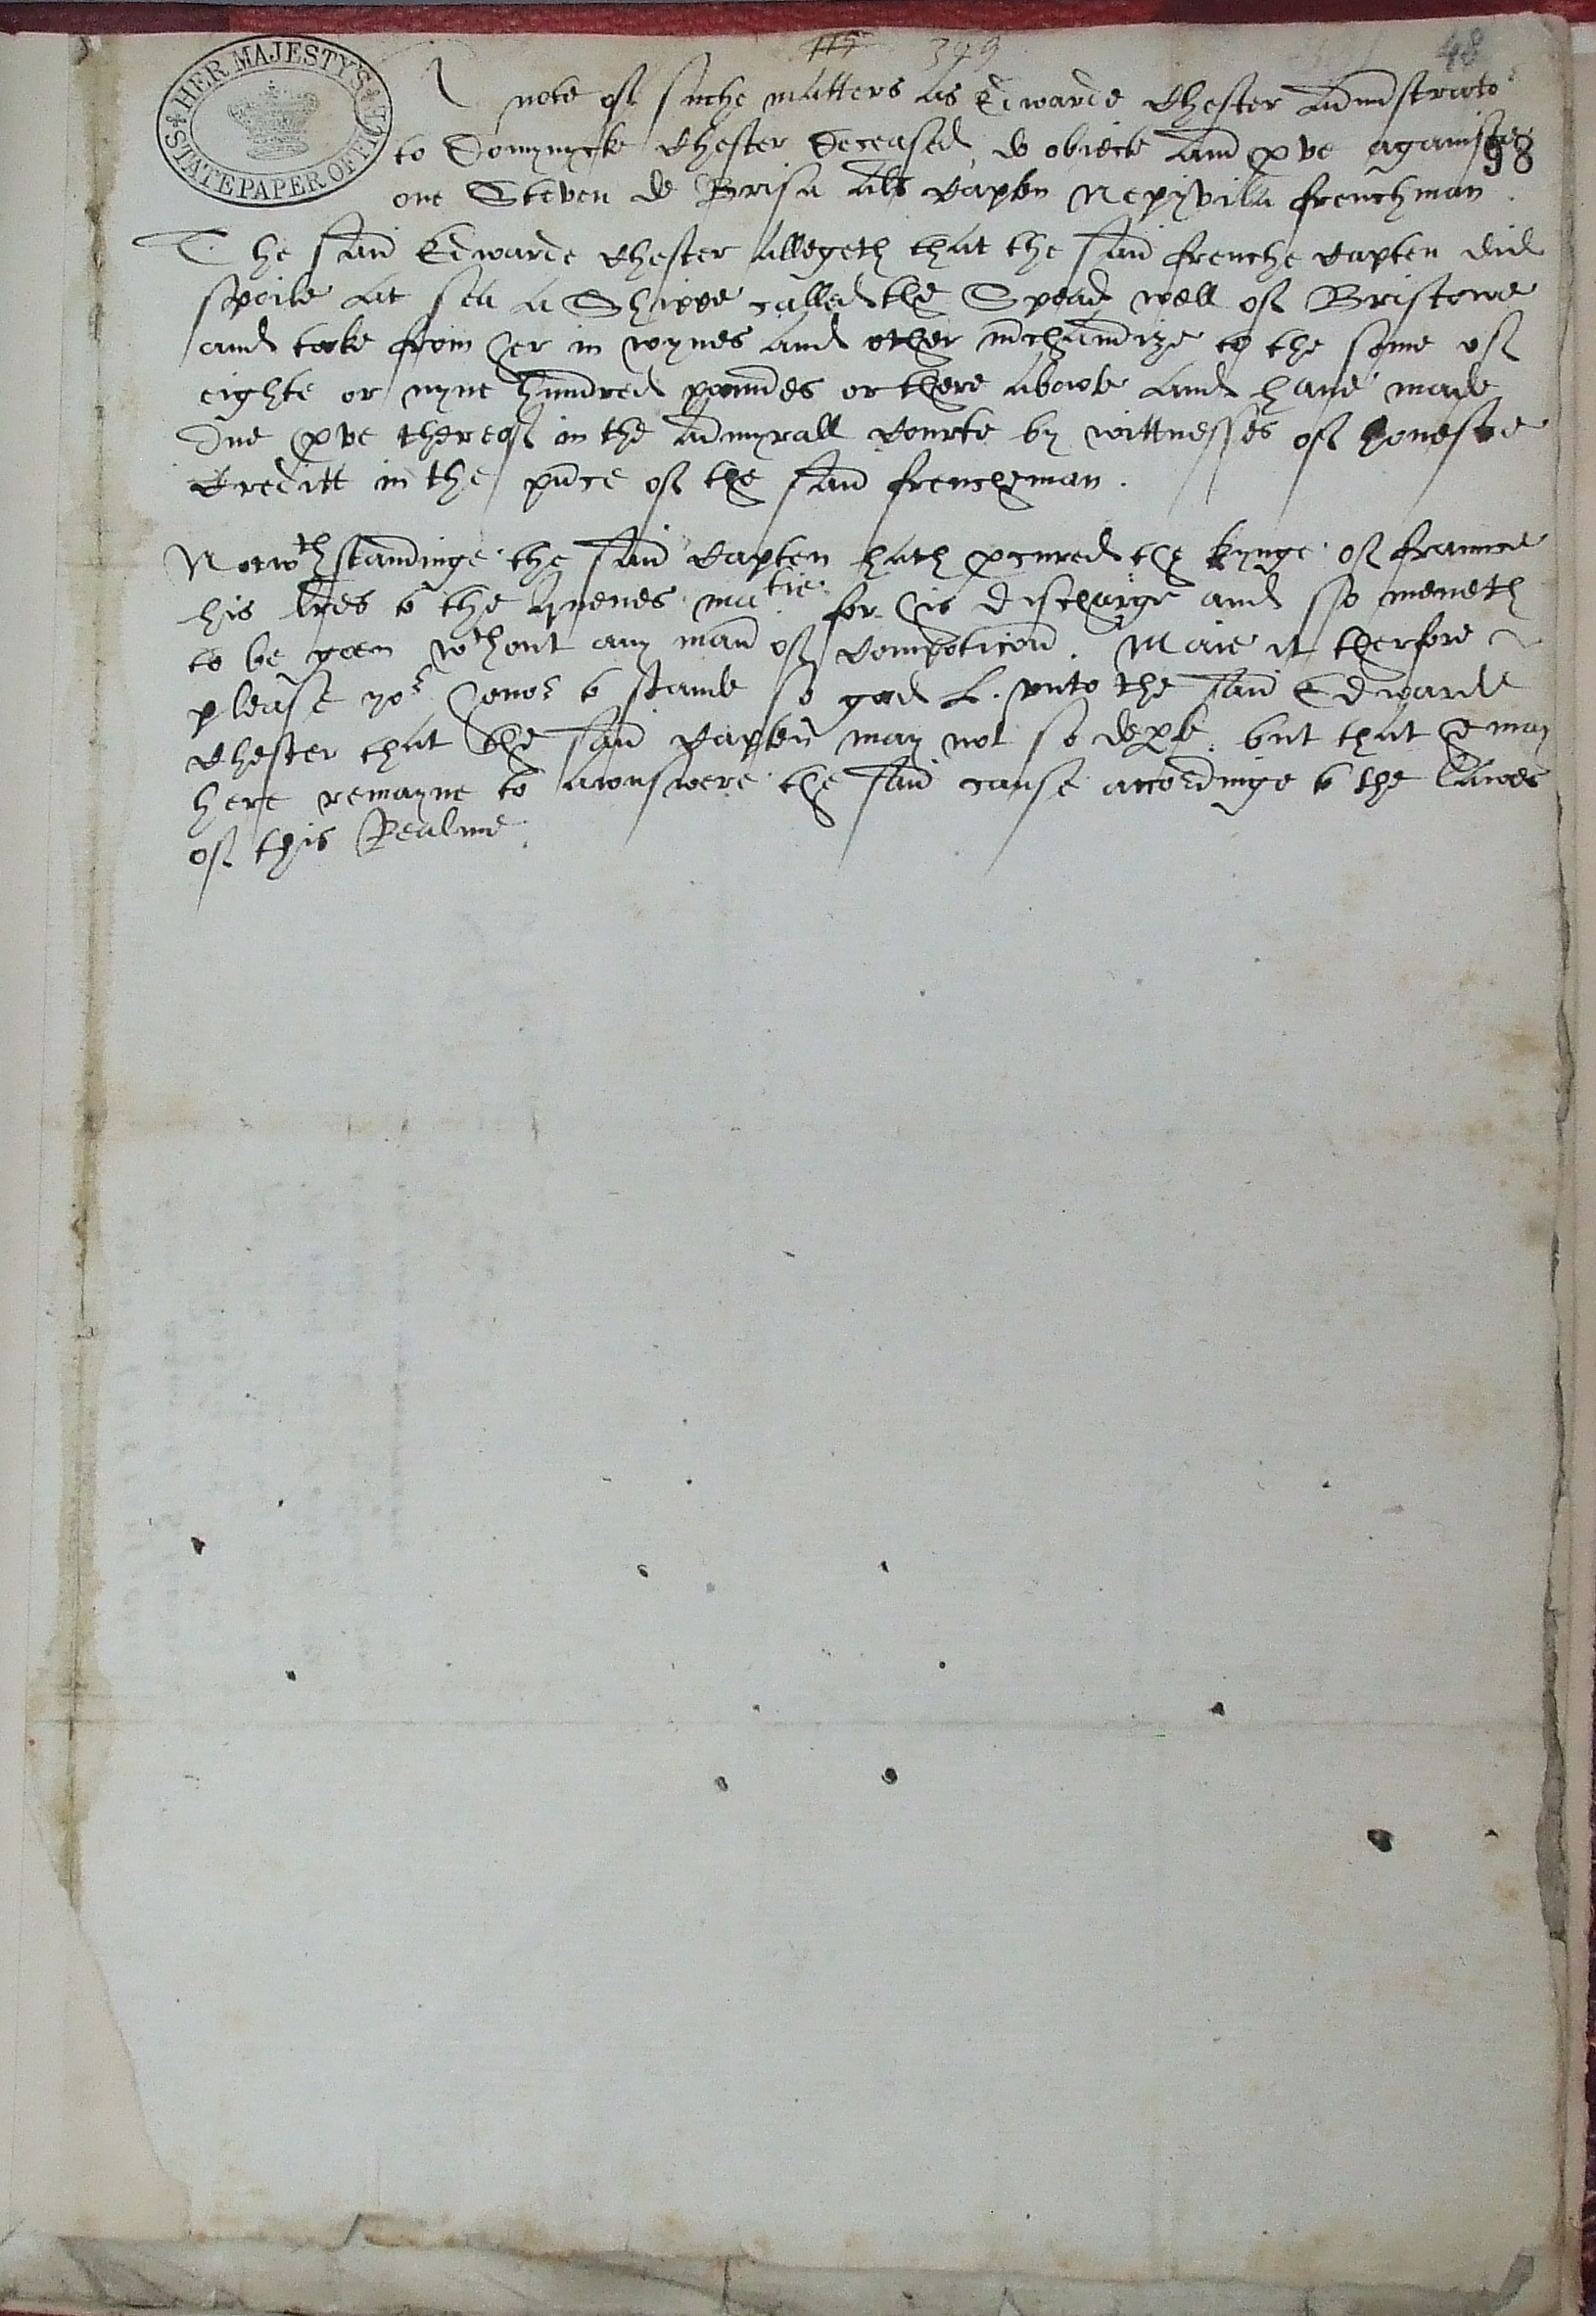 115 399 48
HER MAJESTY'S STATE PAPER OFFICE
A note of suche matters as Edwarde Chester Admistrato^r
to Domynycke Chester deceased, do obiecte and p̱ve againste
98
one Steven de Brisa als Capten Nepivila frenchman.
The said Edwarde Chester allegeth that the said frenche Capten did
spoile at sea a Shippe called the Spead well of Bristowe
and toke from her in wynes and other m̄chandize to the some of
eighte or nyne hundred poundes or there above and have made
due p̱ve thereof in the Admyrall Courte by wittnesses of honeste
Creditt in the p̄nce of the said frencheman.
Notw^th standinge the said Capten hath p̱cured the kynge of fraunce
his l̄res to the Quenes ma^tie for his discharge and sso meneth
to be goen w^thout any man̄ of Composicon̄. Maie it therfore
please yo^r hono^r to stande so good L. vnto the said Edwarde
Chester that the said Capten̄ may not so dep̱te, but that he may
here remayne to aunswere the said cause accordinge to the lawes
of this Realme.